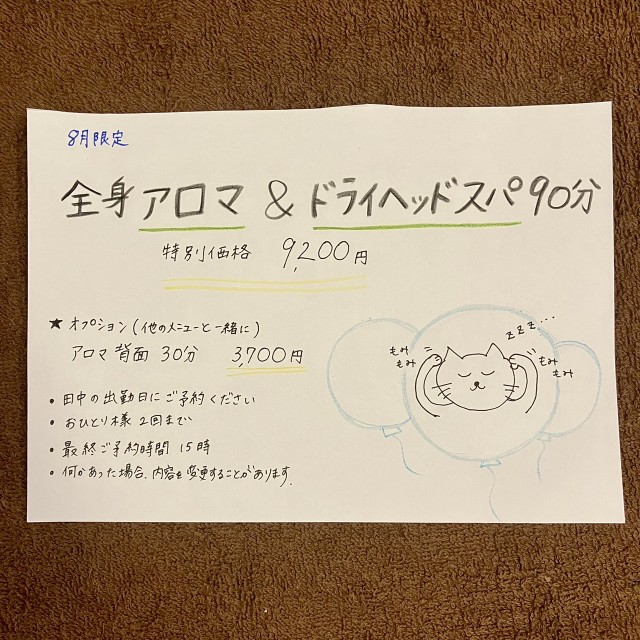 8月限定
全身アロマ & ドライヘッドスパ 90分
特別価格 9,200円
★ オプション(他のメニューと一緒に)
アロマ 背面 30分 3,700円
・田中の出勤日にご予約ください
・おひとり様 2回まで
・最終ご予約時間 15時
・何かあった場合、内容を変更することがあります.
zzz...
もみ
もみ
もみ
もみ